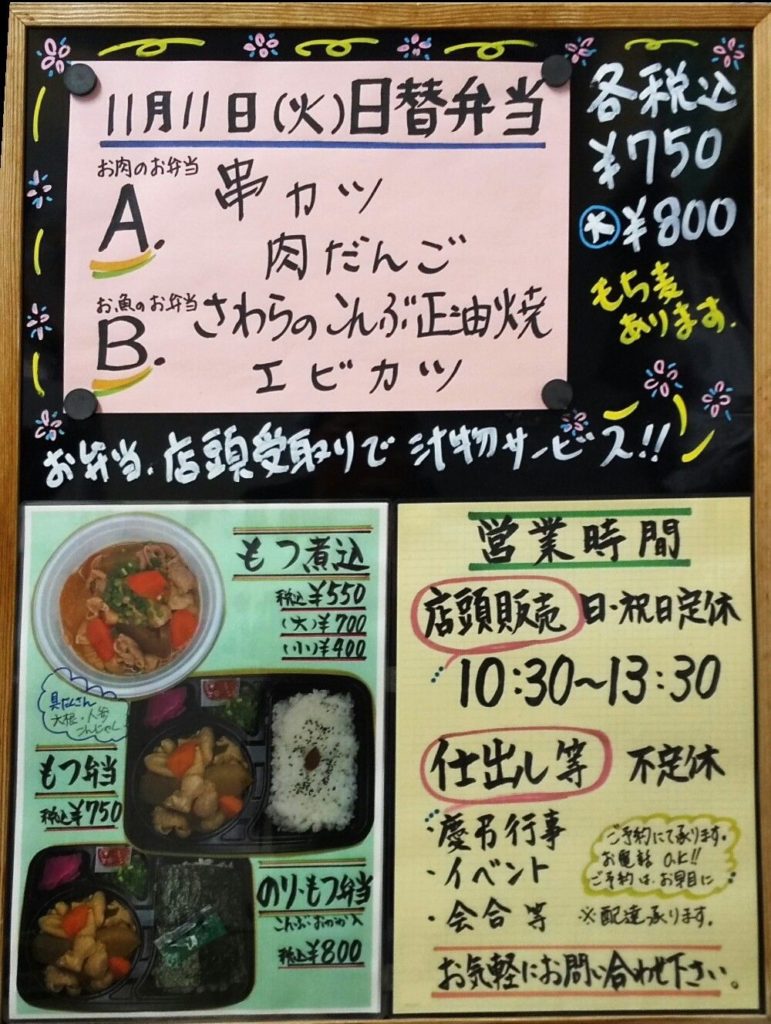 11月11日(火)日替弁当
お肉のお弁当
A.
串カツ
肉だんご
お魚のお弁当
B.
さわらのこんぶ正油焼
エビカツ
各税込
¥750
大 ¥800
もち麦
あります.
お弁当.店頭受取りで汁物サービス!!
もつ煮込
税込¥550
(大)¥700
(小)¥400
具だくさん
大根・人参
こんにゃく
もつ弁当
税込¥750
のり・もつ弁当
こんぶ・おかか入
税込¥800
営業時間
店頭販売 日・祝日定休
10:30~13:30
仕出し等 不定休
・慶弔行事
・イベント
・会合等
ご予約にて承ります。
お電話 O.K!!
ご予約は、お早目に
※配達承ります。
お気軽にお問い合わせ下さい。